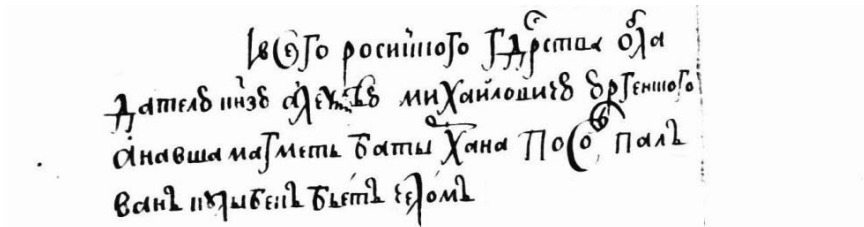 всего росииского гдрства обла
дателю кнзю алеѯѣю михаиловичю юргенского
анавша магметь батыр хана посол палъ
ванъ кулыбекъ бьетъ челомъ